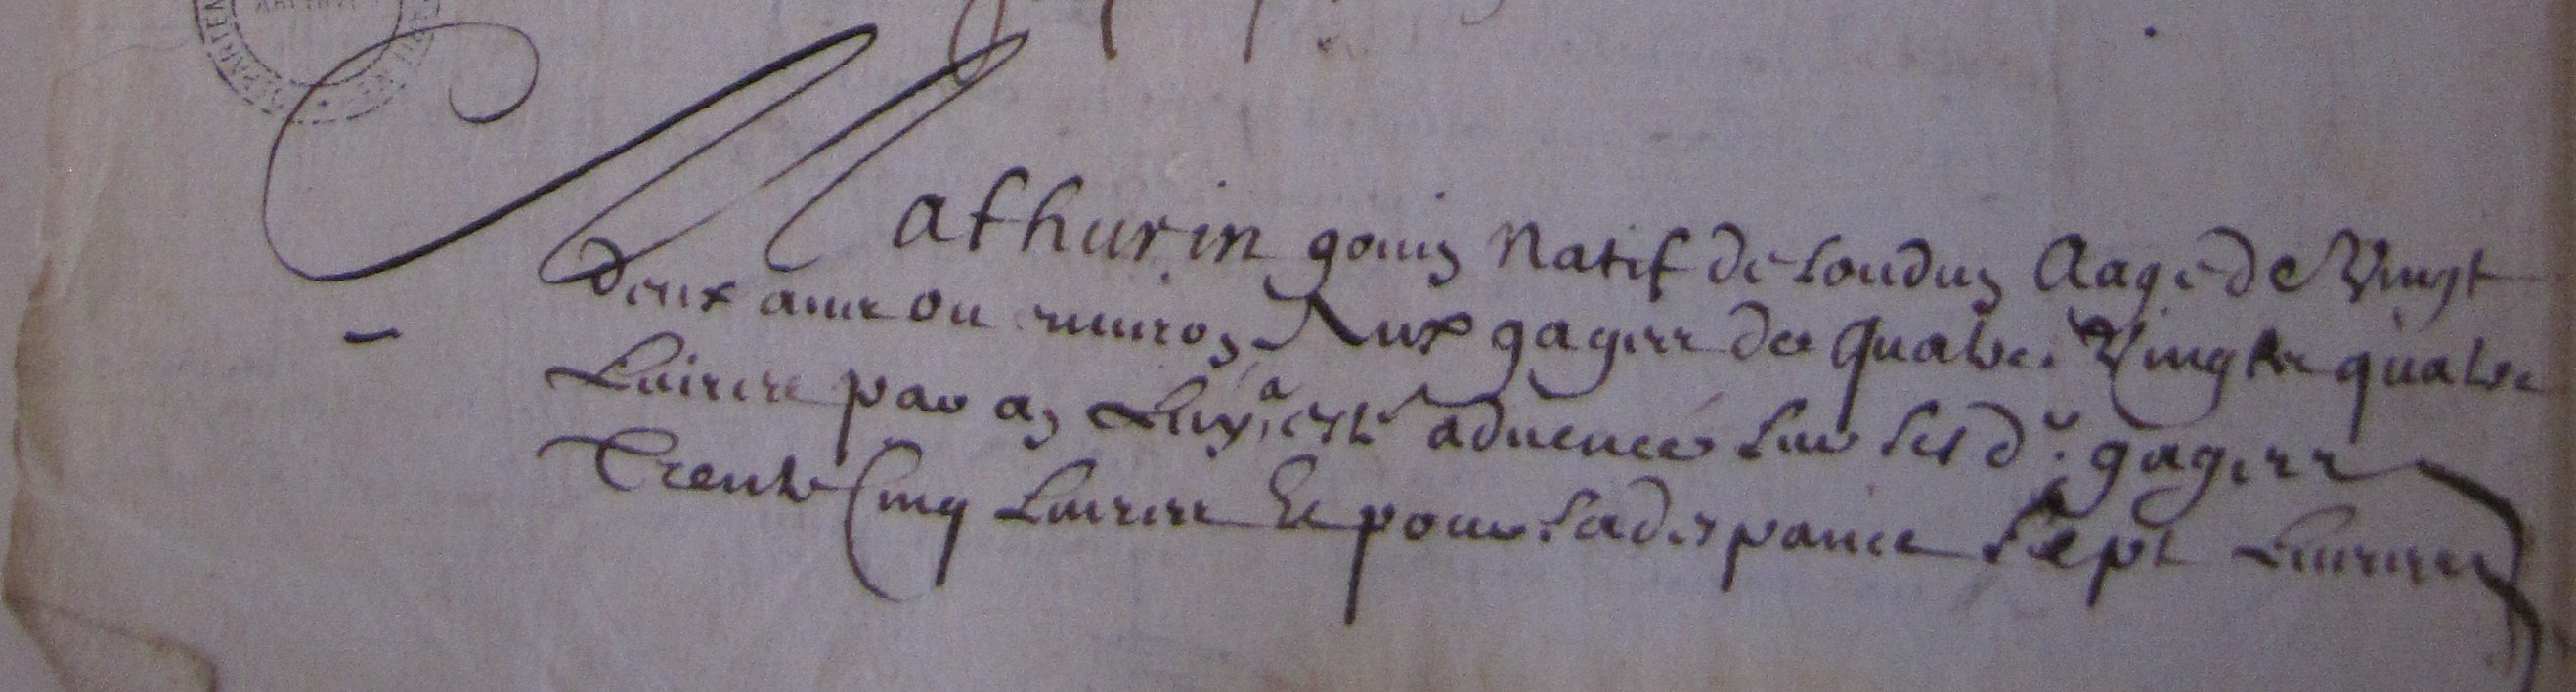 Mathurin gouin Natif de Loudun Aagé de Vingt
deux ans ou environ Aux gages de Quatre Vingts quatre
Livres par an Luy a esté advencé sur ses d. gages
Trente Cinq Livres Et pour sa despance Sept Livres